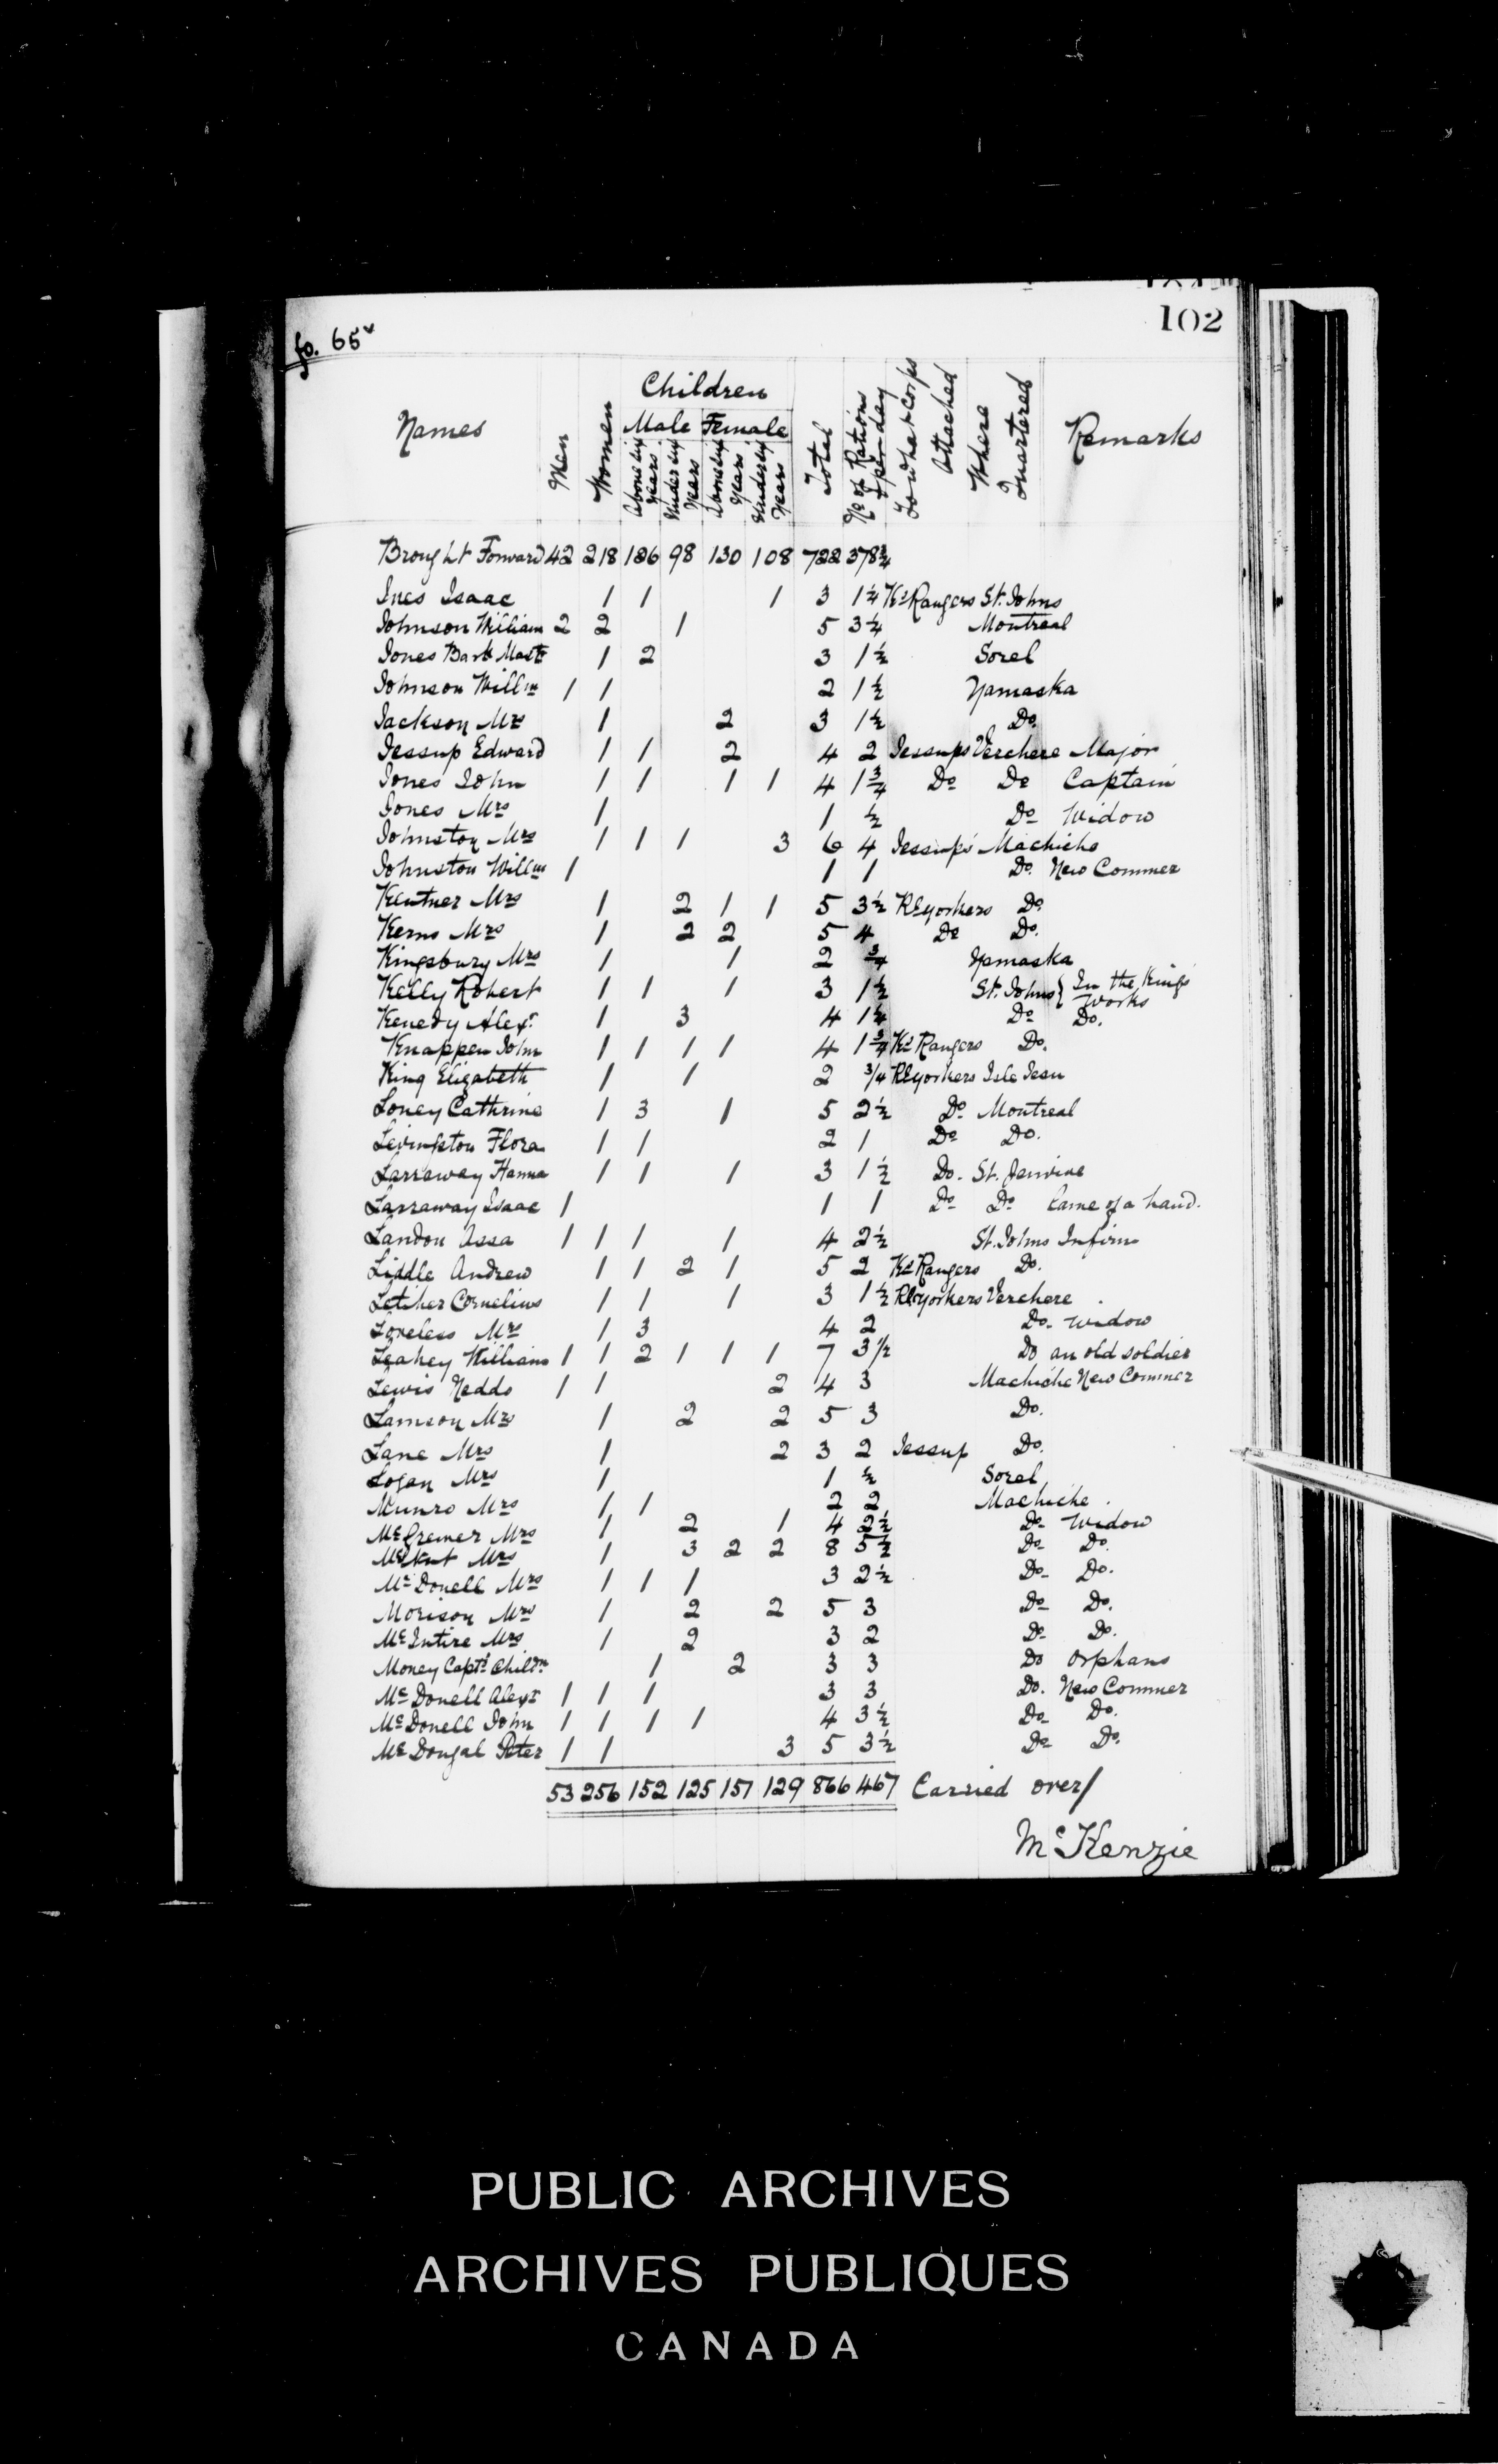 fo. 65v
102
Names Men Women Children Total No of Rations per day To what Corps Attached Where Quartered Remarks
Male Female
Above six Years Under six Years Above six Years Under six Years
Brought Forward 42 218 126 98 130 108 722 378¾
Ines Isaac 1 1 1 3 1¼ Ks Rangers St. Johns
Johnson William 2 2 1 5 3¼ Montreal
Jones Bar 1 2 3 1½ Sorel
Johnson Willm 1 1 2 1½ Yamaska
Jackson Mrs 1 2 3 1½ Do.
Jessup Edward 1 1 2 4 2 Jessups Verchere Major
Jones John 1 1 1 1 4 1¾ Do Do Captain
Jones Mrs 1 1 ½ Do Widow
Johnston Mrs 1 1 1 3 6 4 Jessups Machiche
Johnston Willm 1 1 1 Do. New Commer
Kentner Mrs 1 2 1 1 5 3½ Rlyorkers Do
Kerns Mrs 1 2 2 5 4 Do Do.
Kingsbury Mrs 1 1 2 ¾ Yamaska
Kelly Robert 1 1 1 3 1½ St. Johns { In the Kings
Works
Kenedy Alexr 1 3 4 1¼ Do Do.
Knappen John 1 1 1 1 4 1¾ Ks Rangers Do.
King Elizabeth 1 1 2 3/4 Rlyorkers Isle Jesu
Loney Cathrine 1 3 1 5 2½ Do Montreal
Levingston Flora 1 1 2 1 Do Do.
Larraway Hanna 1 1 1 3 1½ Do. St. Jenvine
Larraway Isaac 1 1 1 Do Do Lame of a hand.
Landon Assa 1 1 1 1 4 2½ St. Johns Infirm
Liddle Andrew 1 1 2 1 5 2 Ks Rangers Do.
Letcher Cornelius 1 1 1 3 1½ Rlyorkers Verchere
Loveless Mrs 1 3 4 2 Do. Widow
Leahey William 1 1 2 1 1 1 7 3½ Do an old soldier
Lewis Nedds 1 1 2 4 3 Machiche New Commer
Lamson Mrs 1 2 2 5 3 Do.
Lane Mrs 1 2 3 2 Jessup Do.
Logan Mrs 1 1 ½ Sorel
Munro Mrs 1 1 2 2 Machiche.
Mc Gremer Mrs 1 2 1 4 2½ Do Widow
McNut Mrs 1 3 2 2 8 5½ Do Do.
Mc Donell Mrs 1 1 1 3 2½ Do Do.
Morison Mrs 1 2 2 5 3 Do Do.
Mc Intire Mrs 1 2 3 2 Do Do.
Money Capts Childn 1 2 3 3 Do Orphans
Mc Donell Alexr 1 1 1 3 3 Do. New Commer
Mc Donell John 1 1 1 1 4 3½ Do Do.
Mc Dougal Peter 1 1 3 5 3½ Do Do.
53 256 152 125 151 129 866 467 Carried over/
Mc Kenzie
PUBLIC ARCHIVES
ARCHIVES PUBLIQUES
CANADA